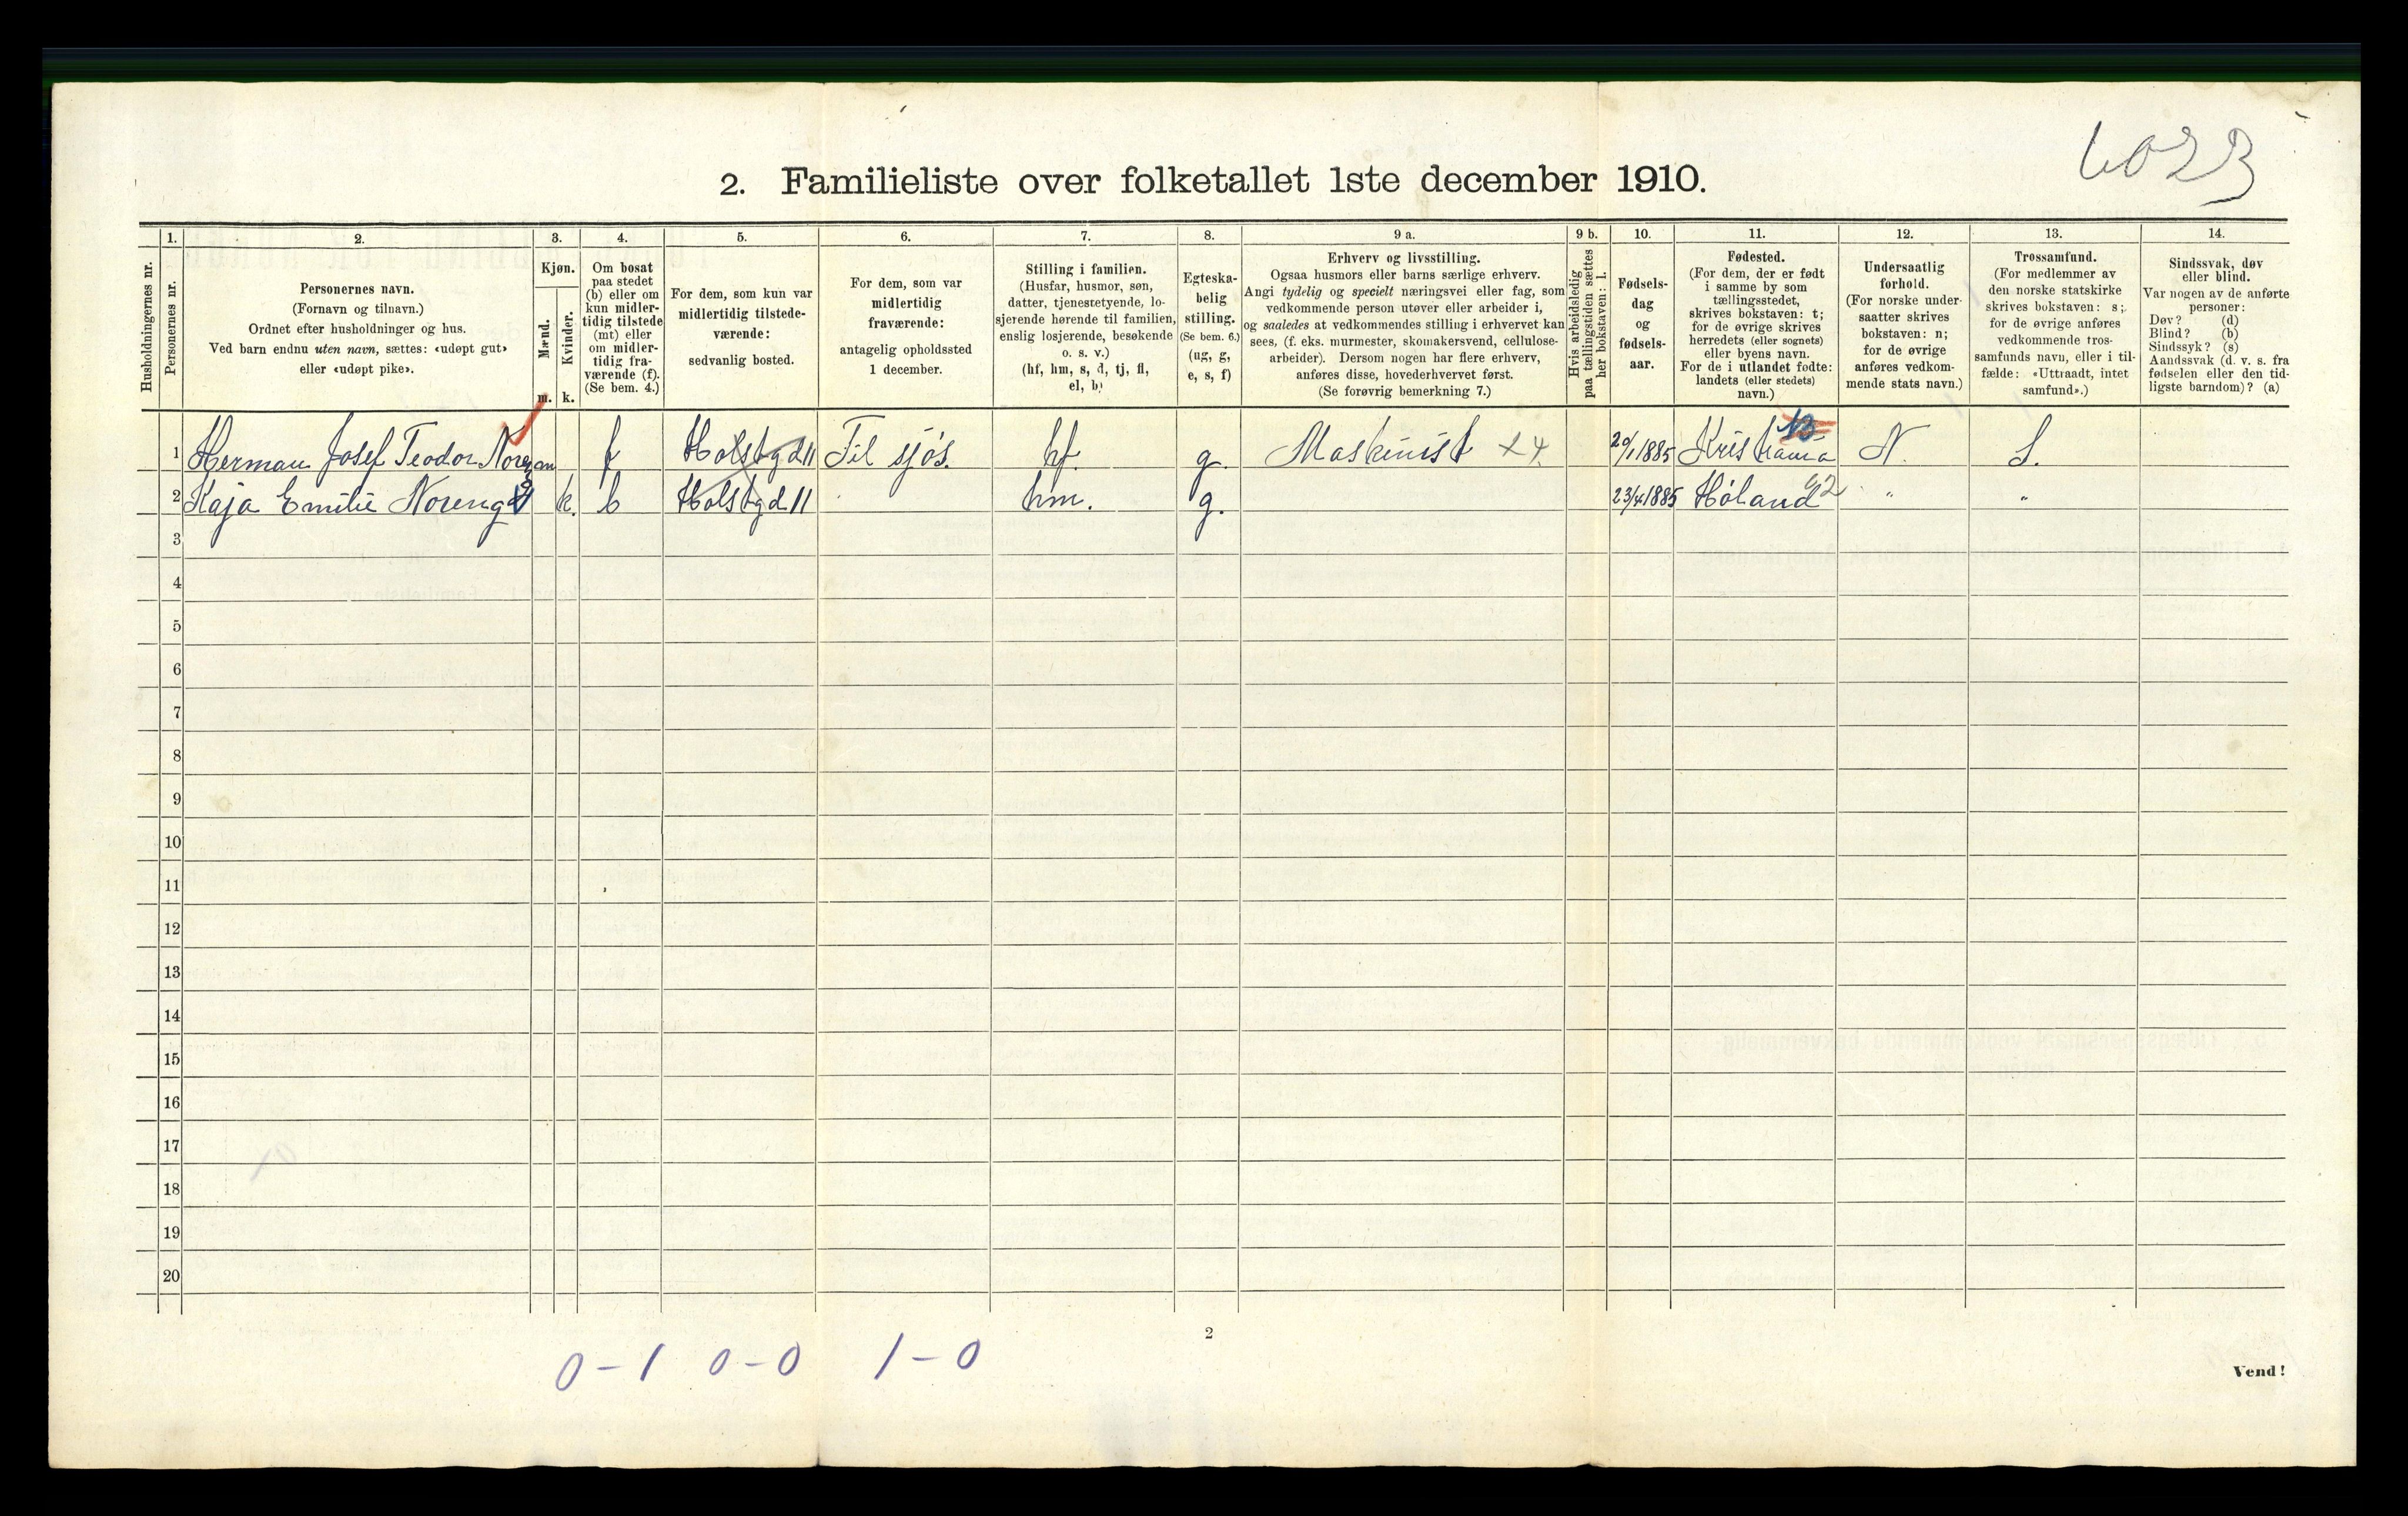 6023
2. Familieliste over folketallet 1ste december 1910.
Husholdningernes nr.
1.
Personernes nr.
2.
Personernes navn.
(Fornavn og tilnavn.)
Ordnet efter husholdninger og hus.
Ved barn endnu uten navn, sættes: «udøpt gut»
eller «udøpt pike».
3.
Kjøn.
Mænd.
m.
Kvinder.
k.
4.
Om bosat
paa stedet
(b) eller om
kun midler-
tidig tilstede
(mt) eller
om midler-
tidig fra-
værende (f).
(Se bem. 4.)
5.
For dem, som kun var
midlertidig tilstede-
værende:
sedvanlig bosted.
6.
For dem, som var
midlertidig
fraværende:
antagelig opholdssted
1 december.
7.
Stilling i familien.
(Husfar, husmor, søn,
datter, tjenestetyende, lo-
sjerende hørende til familien,
enslig losjerende, besøkende
o. s. v.)
(hf, hm, s, d, tj, fl,
el, b)
8.
Egteska-
belig
stilling.
(Se bem. 6.)
(ug, g,
e, s, f)
9 a.
Erhverv og livsstilling.
Ogsaa husmors eller barns særlige erhverv.
Angi tydelig og specielt næringsvei eller fag, som
vedkommende person utøver eller arbeider i,
og saaledes at vedkommendes stilling i erhvervet kan
sees, (f. eks. murmester, skomakersvend, cellulose-
arbeider). Dersom nogen har flere erhverv,
anføres disse, hovederhvervet først.
(Se forøvrig bemerkning 7.)
9 b.
Hvis arbeidsledig
paa tællingstiden sættes
her bokstaven: l.
10.
Fødsels-
dag
og
fødsels-
aar.
11.
Fødested.
(For dem, der er født
i samme by som
tællingsstedet,
skrives bokstaven: t;
for de øvrige skrives
herredets (eller sognets)
eller byens navn.
For de i utlandet fødte:
landets (eller stedets)
navn.)
12.
Undersaatlig
forhold.
(For norske under-
saatter skrives
bokstaven: n;
for de øvrige
anføres vedkom-
mende stats navn.)
13.
Trossamfund.
(For medlemmer av
den norske statskirke
skrives bokstaven: s;
for de øvrige anføres
vedkommende tros-
samfunds navn, eller i til-
fælde: «Uttraadt, intet
samfund».)
14.
Sindssvak, døv
eller blind.
Var nogen av de anførte
personer:
Døv? (d)
Blind? (b)
Sindssyk? (s)
Aandssvak (d. v. s. fra
fødselen eller den tid-
ligste barndom)? (a)
1 Herman Josef Teodor Noreng m f Holstgd 11 Til sjøs. hf. g. Maskinist x4. 20/1 1885 Kristiania 13 N. S.
2 Kaja Emilie Noreng k. b Holstgd 11 hm. g. 23/4 1885 Høland 02 " "
3
4
5
6
7
8
9
10
11
12
13
14
15
16
17
18
19
20
2
0-1 0-0 1-0
Vend!